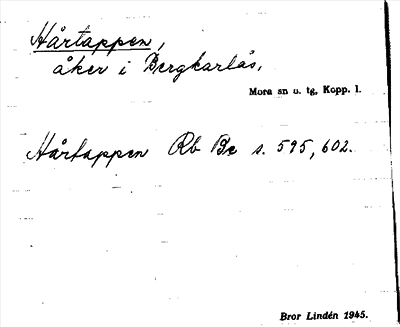 Hårtappen,
åker i Bergkarlås.
Mora sn o. tg, Kopp. l.
Hårtappen Rb Be s. 595, 602.
Bror Lindén 1945.